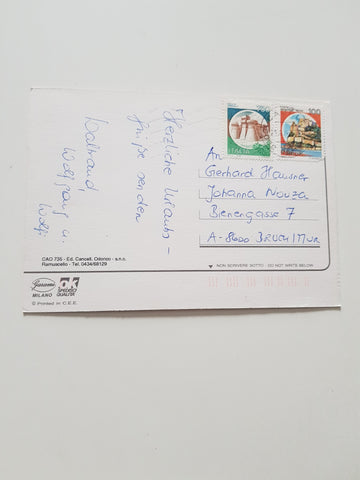 Herzliche Urlaubs-
grüße senden
Waltraud,
Wolfgang u.
Wolfi
An
Gerhard Hausner
Johanna Nouza
Bienengasse 7
A-8600 BRUCK/MUR
ITALIA
100
CAO 736 - Ed. Cancell. Odorico - s.n.c.
Ramuscello - Tel. 0434/69129
NON SCRIVERE SOTTO - DO NOT WRITE BELOW
MILANO
OK
SPECIO
QUALITÀ
© Printed in C.E.E.